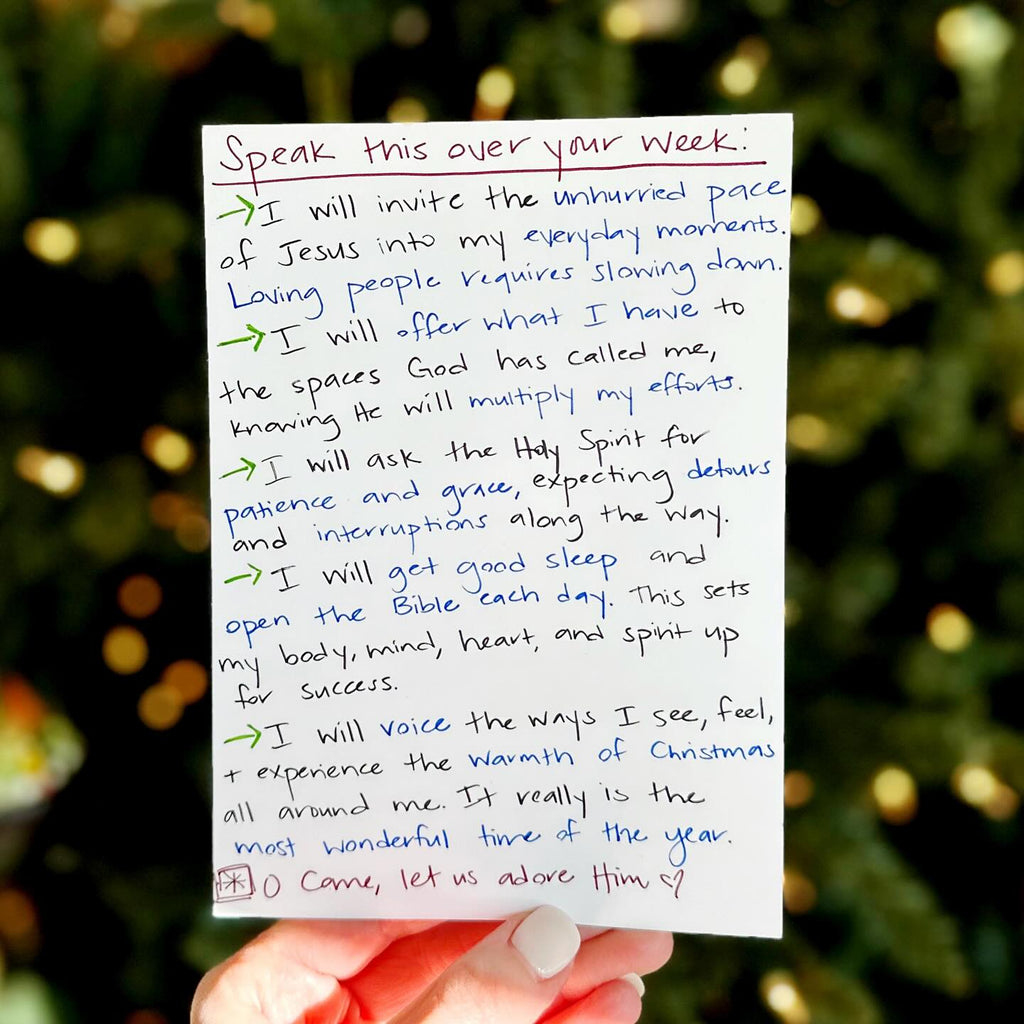 Speak this over your week:
→I will invite the unhurried pace
of Jesus into my everyday moments.
Loving people requires slowing down.
→I will offer what I have to
the spaces God has called me,
knowing He will multiply my efforts.
→I will ask the Holy Spirit for
patience and grace, expecting detours
and interruptions along the way.
→I will get good sleep and
open the Bible each day. This sets
my body, mind, heart, and spirit up
for success.
→I will voice the ways I see, feel,
+ experience the warmth of Christmas
all around me. It really is the
most wonderful time of the year.
O Come, let us adore Him ♡